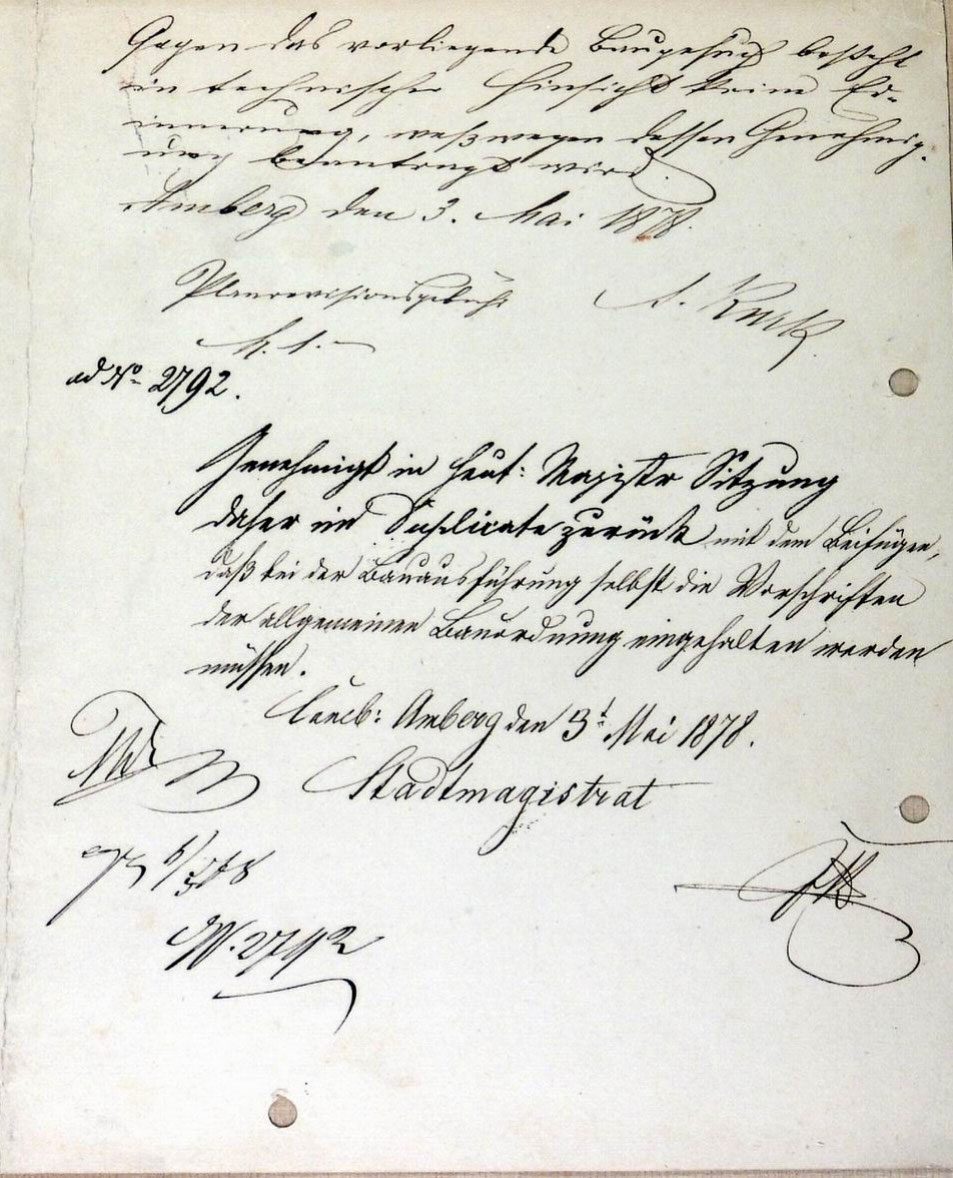 Gegen das vorliegende Baugesuch besteht
in technischer Hinsicht keine Er-
innerung, weßwegen dessen Genehmig-
ung beantragt wird.
Amberg den 3. Mai 1878.
Planrevisionsgebühr
M. 1.—
ad No 2792.
Genehmigt in heut: Magistr Sitzung
daher im Duplicate zurück mit dem Beifügen,
daß bei der Bauausführung selbst die Vorschriften
der allgemeinen Bauordnung eingehalten werden
müssen.
Amberg den 3t Mai 1878.
Stadtmagistrat
N. 2792